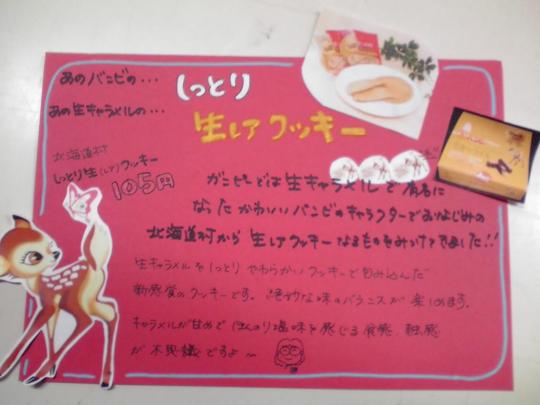 あのバンビの・・・
あの生キャラメルの・・・
しっとり
生レアクッキー
北海道村
しっとり生(レア)クッキー
105円
バンビーとは生キャラメルで有名に
なったかわいいバンビのキャラクターでおなじみの
北海道村から生レアクッキーなるものをみつけてきました!!
生キャラメルをしっとりやわらかいクッキーで包み込んだ
新感覚のクッキーです。絶妙な味のバランスが楽しめます。
キャラメルが甘めでほんのり塩味を感じる食感、触感
が不思議ですよ〜